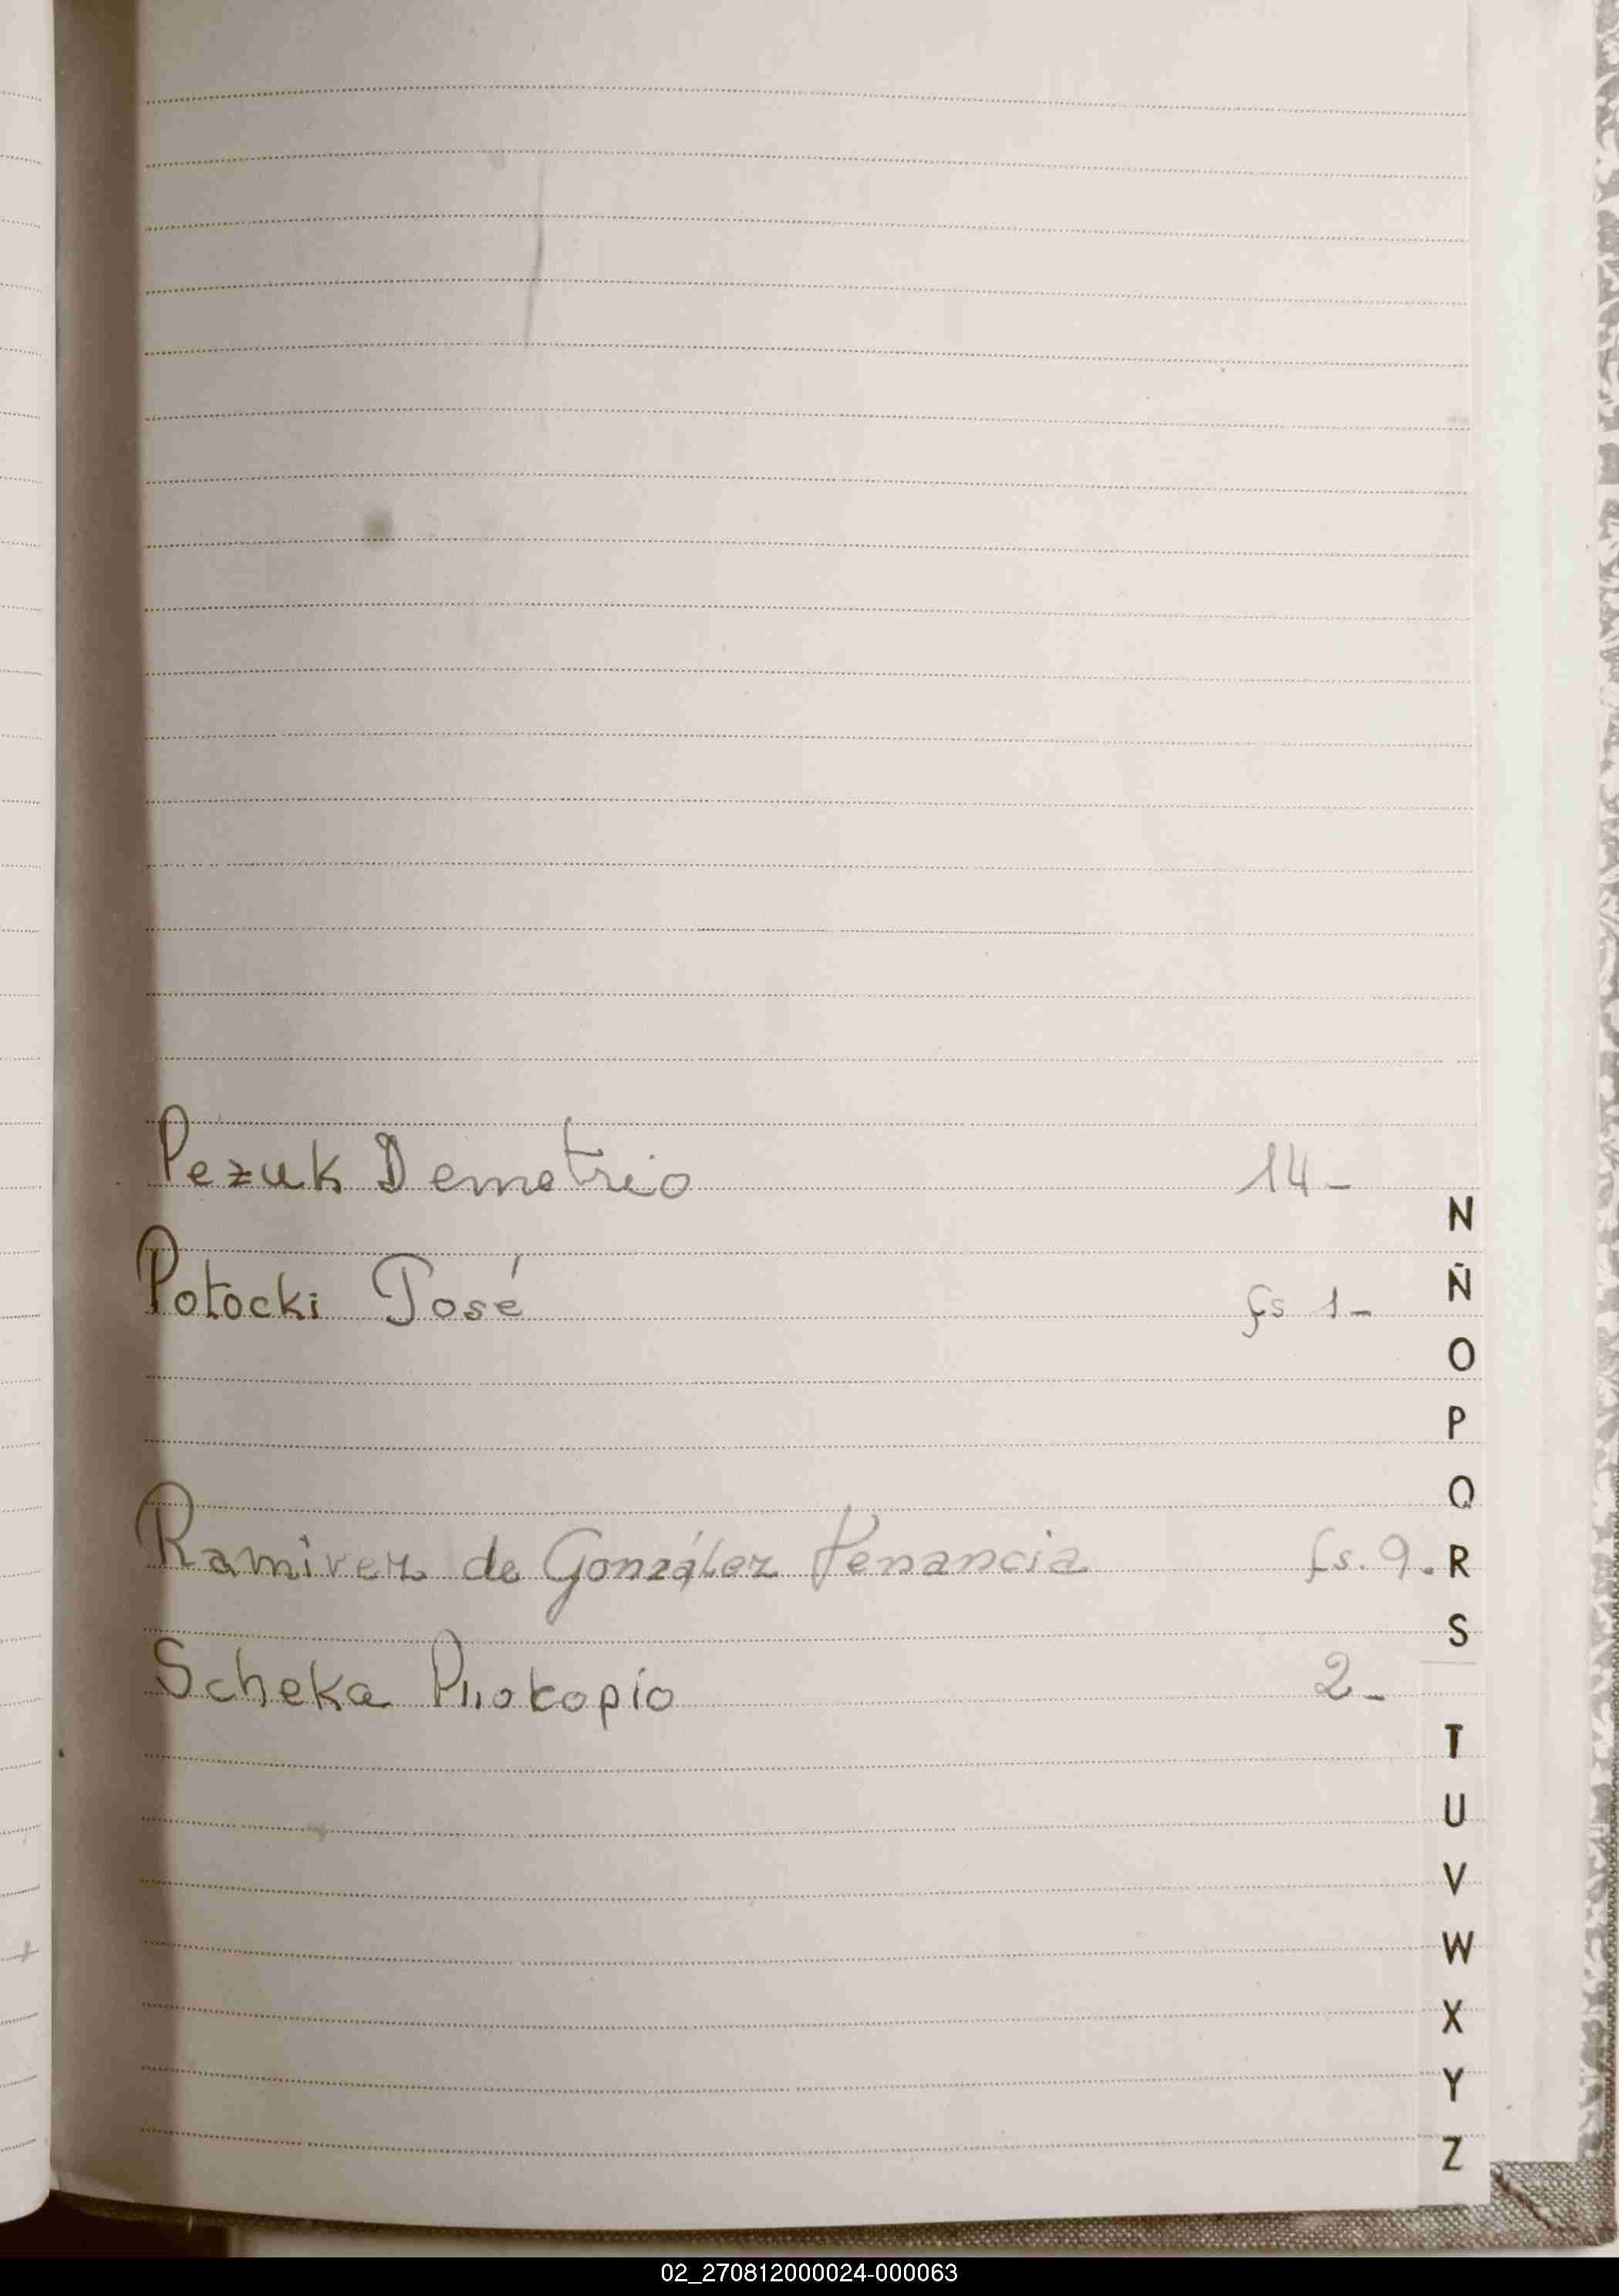 Pezuk Demetrio 14-
N
Potocki José fs 1-
Ñ
O
P
Q
Ramirez de González Venancia fs. 9. R
S
Scheka Prokopio 2-
T
U
V
W
X
Y
Z
02_270812000024-000063